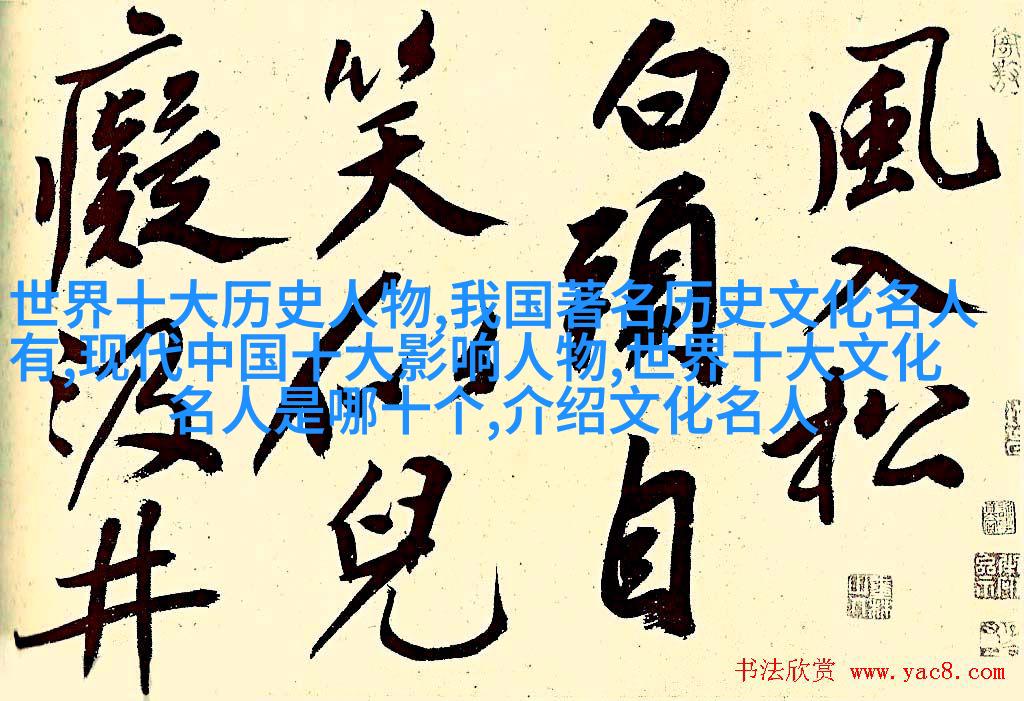 風入松
白頭自
笑兒
癡汲井
世界十大历史人物,我国著名历史文化名人
有,现代中国十大影响人物,世界十大文化
名人是哪十个,介绍文化名人
书法欣赏 www.yac8.com